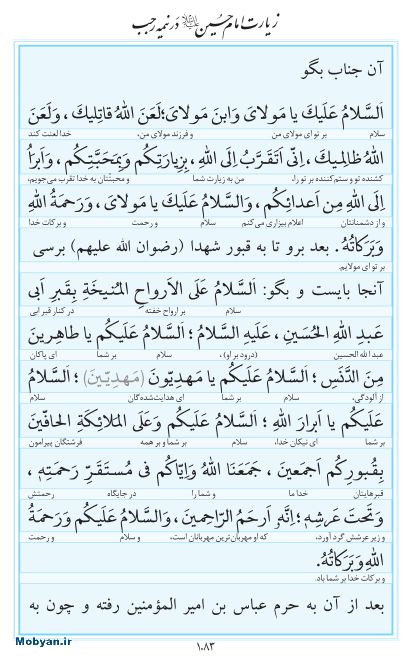 زیارت امام حسین علیه‌السلام در نیمه رجب
آن جناب بگو
اَلسَّلامُ عَلَیكَ یا مَولایَ وَابنَ مَولایَ؛ لَعَنَ اللهُ قاتِلیكَ، وَلَعَنَ
سلام بر تو ای مولای من و فرزند مولای من، خدا لعنت کند
اللهُ ظالِمیكَ، اِنّی اَتَقَرَّبُ اِلَی اللهِ، بِزِیارَتِکُم وَبِمَحَبَّتِکُم، وَاَبرَأُ
کشنده تو و ستم‌کننده بر تو را، من به زیارت شما و محبتتان به خدا تقرب می‌جویم،
اِلَی اللهِ مِن اَعدائِکُم، وَالسَّلامُ عَلَیكَ یا مَولایَ، وَرَحمَةُ اللهِ
و از دشمنانتان اعلام بیزاری می‌کنم سلام و رحمت و برکات خدا
وَبَرَکاتُهُ. بعد برو تا به قبور شهدا (رضوان الله علیهم) برسی
بر تو ای مولایم.
آنجا بایست و بگو: اَلسَّلامُ عَلَی الاَرواحِ المُنیخَةِ بِقَبرِ اَبی
سلام بر ارواح خفته در کنار قبر ابی
عَبدِ اللهِ الحُسَینِ، عَلَیهِ السَّلامُ؛ اَلسَّلامُ عَلَیکُم یا طاهِرینَ
عبد الله الحسین (درود بر او)، سلام بر شما ای پاکان
مِنَ الدَّنَسِ؛ اَلسَّلامُ عَلَیکُم یا مَهدِیّونَ (مَهدِیّینَ)؛ اَلسَّلامُ
از آلودگی، سلام بر شما ای هدایت‌شده‌گان سلام
عَلَیکُم یا اَبرارَ اللهِ؛ اَلسَّلامُ عَلَیکُم وَعَلَی المَلائِکَةِ الحافّینَ
بر شما ای نیکان خدا، سلام بر شما و بر همه فرشتگان پیرامون
بِقُبورِکُم اَجمَعینَ، جَمَعَنَا اللهُ وَاِیّاکُم فی مُستَقَرِّ رَحمَتِهِ،
قبرهایتان خدا ما و شما را در جایگاه رحمتش
وَتَحتَ عَرشِهِ؛ اِنَّهُ اَرحَمُ الرّاحِمینَ، وَالسَّلامُ عَلَیکُم وَرَحمَةُ
و زیر عرشش گرد آورد، که او مهربان‌ترین مهربانان است، و سلام و رحمت
اللهِ وَبَرَکاتُهُ.
و برکات خدا بر شما باد.
بعد از آن به حرم عباس بن امیر المؤمنین رفته و چون به
Mobyan.ir
۱۰۸۳